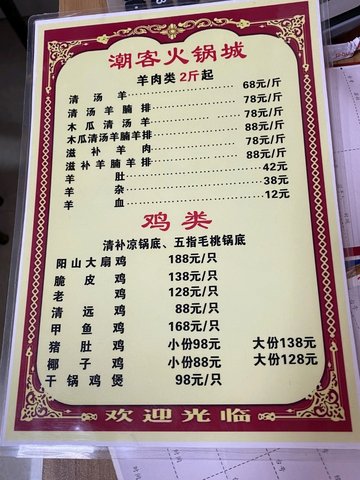 潮客火锅城
羊肉类 2斤起
清汤羊 68元/斤
清汤羊腩排 78元/斤
木瓜清汤羊 78元/斤
木瓜清汤羊腩羊排 88元/斤
滋补羊肉 78元/斤
滋补羊腩羊排 88元/斤
羊肚 42元
羊杂 38元
羊血 12元
鸡类
清补凉锅底、五指毛桃锅底
阳山大扇鸡 188元/只
脆皮鸡 138元/只
老鸡 128元/只
清远鸡 88元/只
甲鱼鸡 168元/只
猪肚鸡 小份98元 大份138元
椰子鸡 小份88元 大份128元
干锅鸡煲 98元/只
欢迎光临